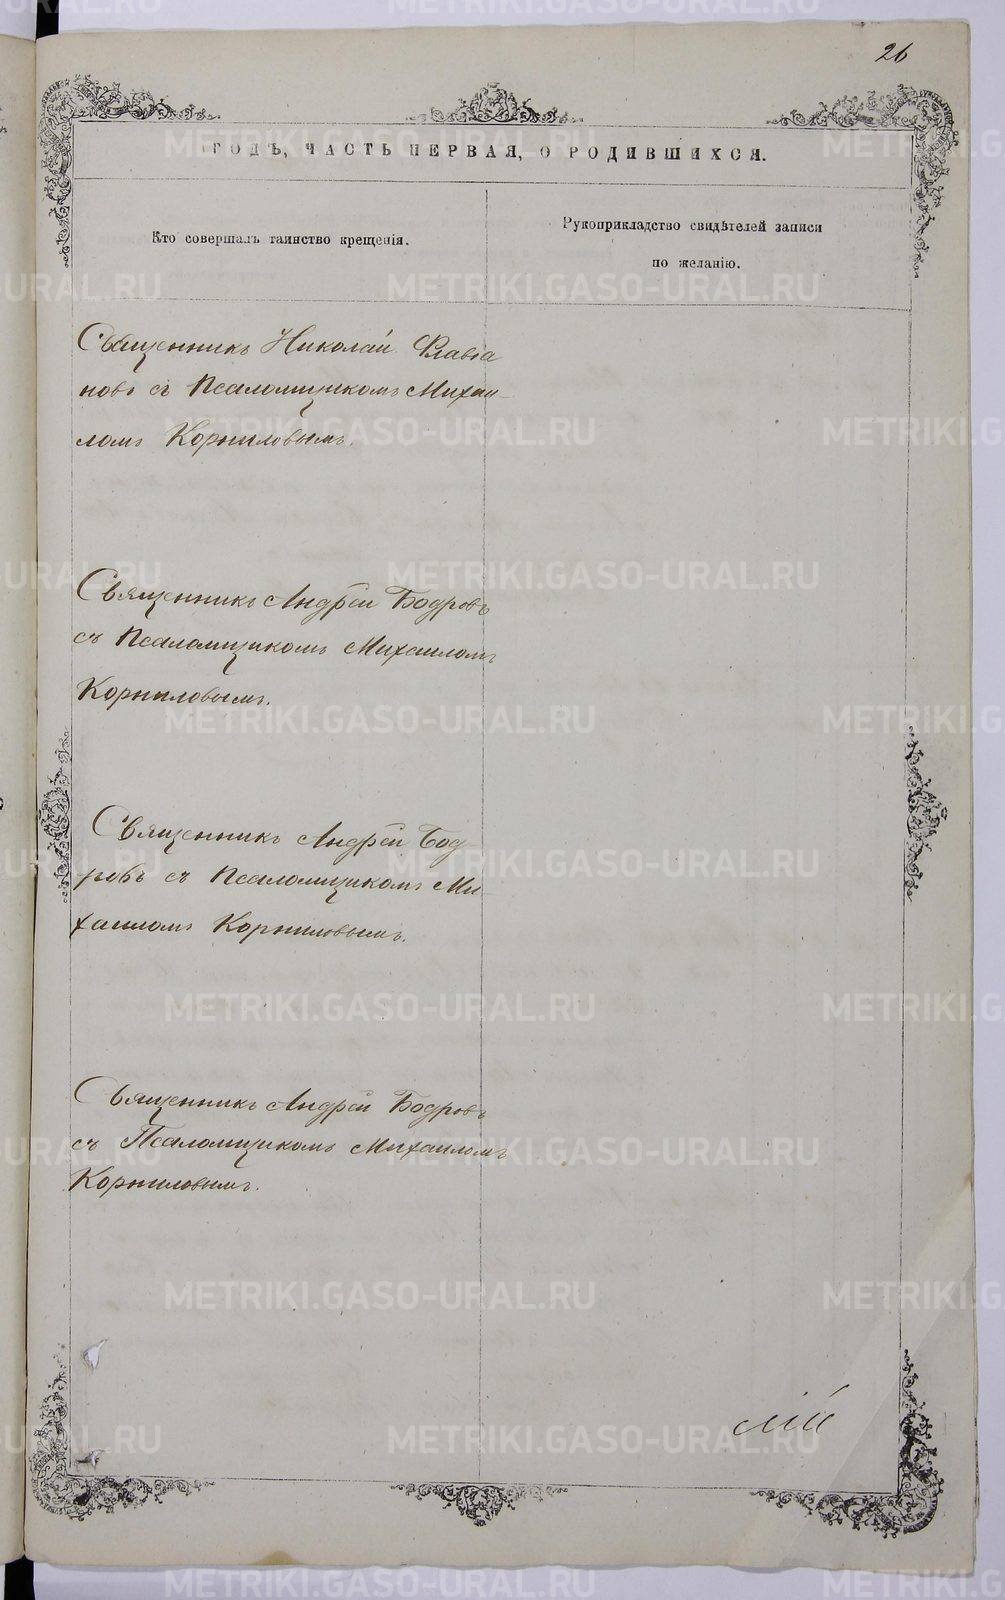 26
ГОДЪ, ЧАСТЬ ПЕРВАЯ, О РОДИВШИХСЯ.
Кто совершалъ таинство крещенія.
Рукоприкладство свидѣтелей записи
по желанію.
Священникъ Николай Флавіа
новъ съ Псаломщикомъ Михаи-
ломъ Корниловымъ.
Священникъ Андрей Бодровъ
съ Псаломщикомъ Михаиломъ
Корниловымъ.
Священникъ Андрей Бод-
ровъ съ Псаломщикомъ Ми-
хаиломъ Корниловымъ.
Священникъ Андрей Бодровъ
съ Псаломщикомъ Михаиломъ
Корниловымъ.
METRIKI.GASO-URAL.RU